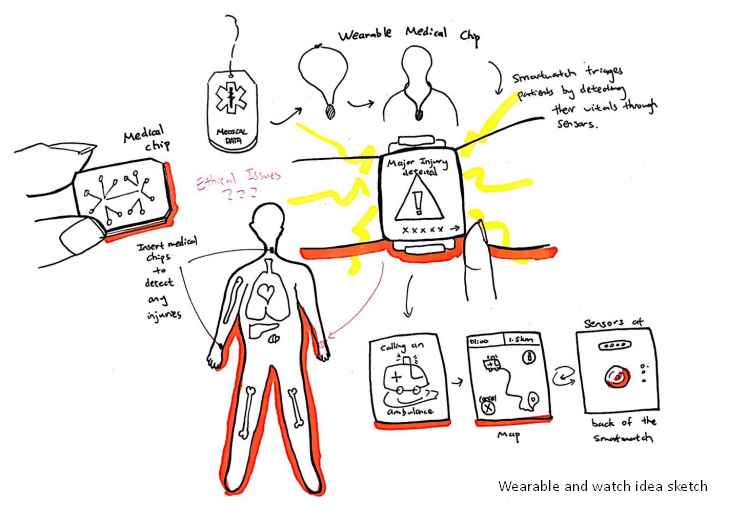 Wearable Medical Chip
MEDICAL
DATA
Smartwatch triages
patients by detecting
their vitals through
sensors.
Medical
chip
Ethical Issues
???
Major Injury
detected
xxxxx
Insert medical
chips
to
detect
any
injuries
calling an
ambulance
01:00
1.5km
cancel
Map
Sensors at
back of the
smartwatch
Wearable and watch idea sketch